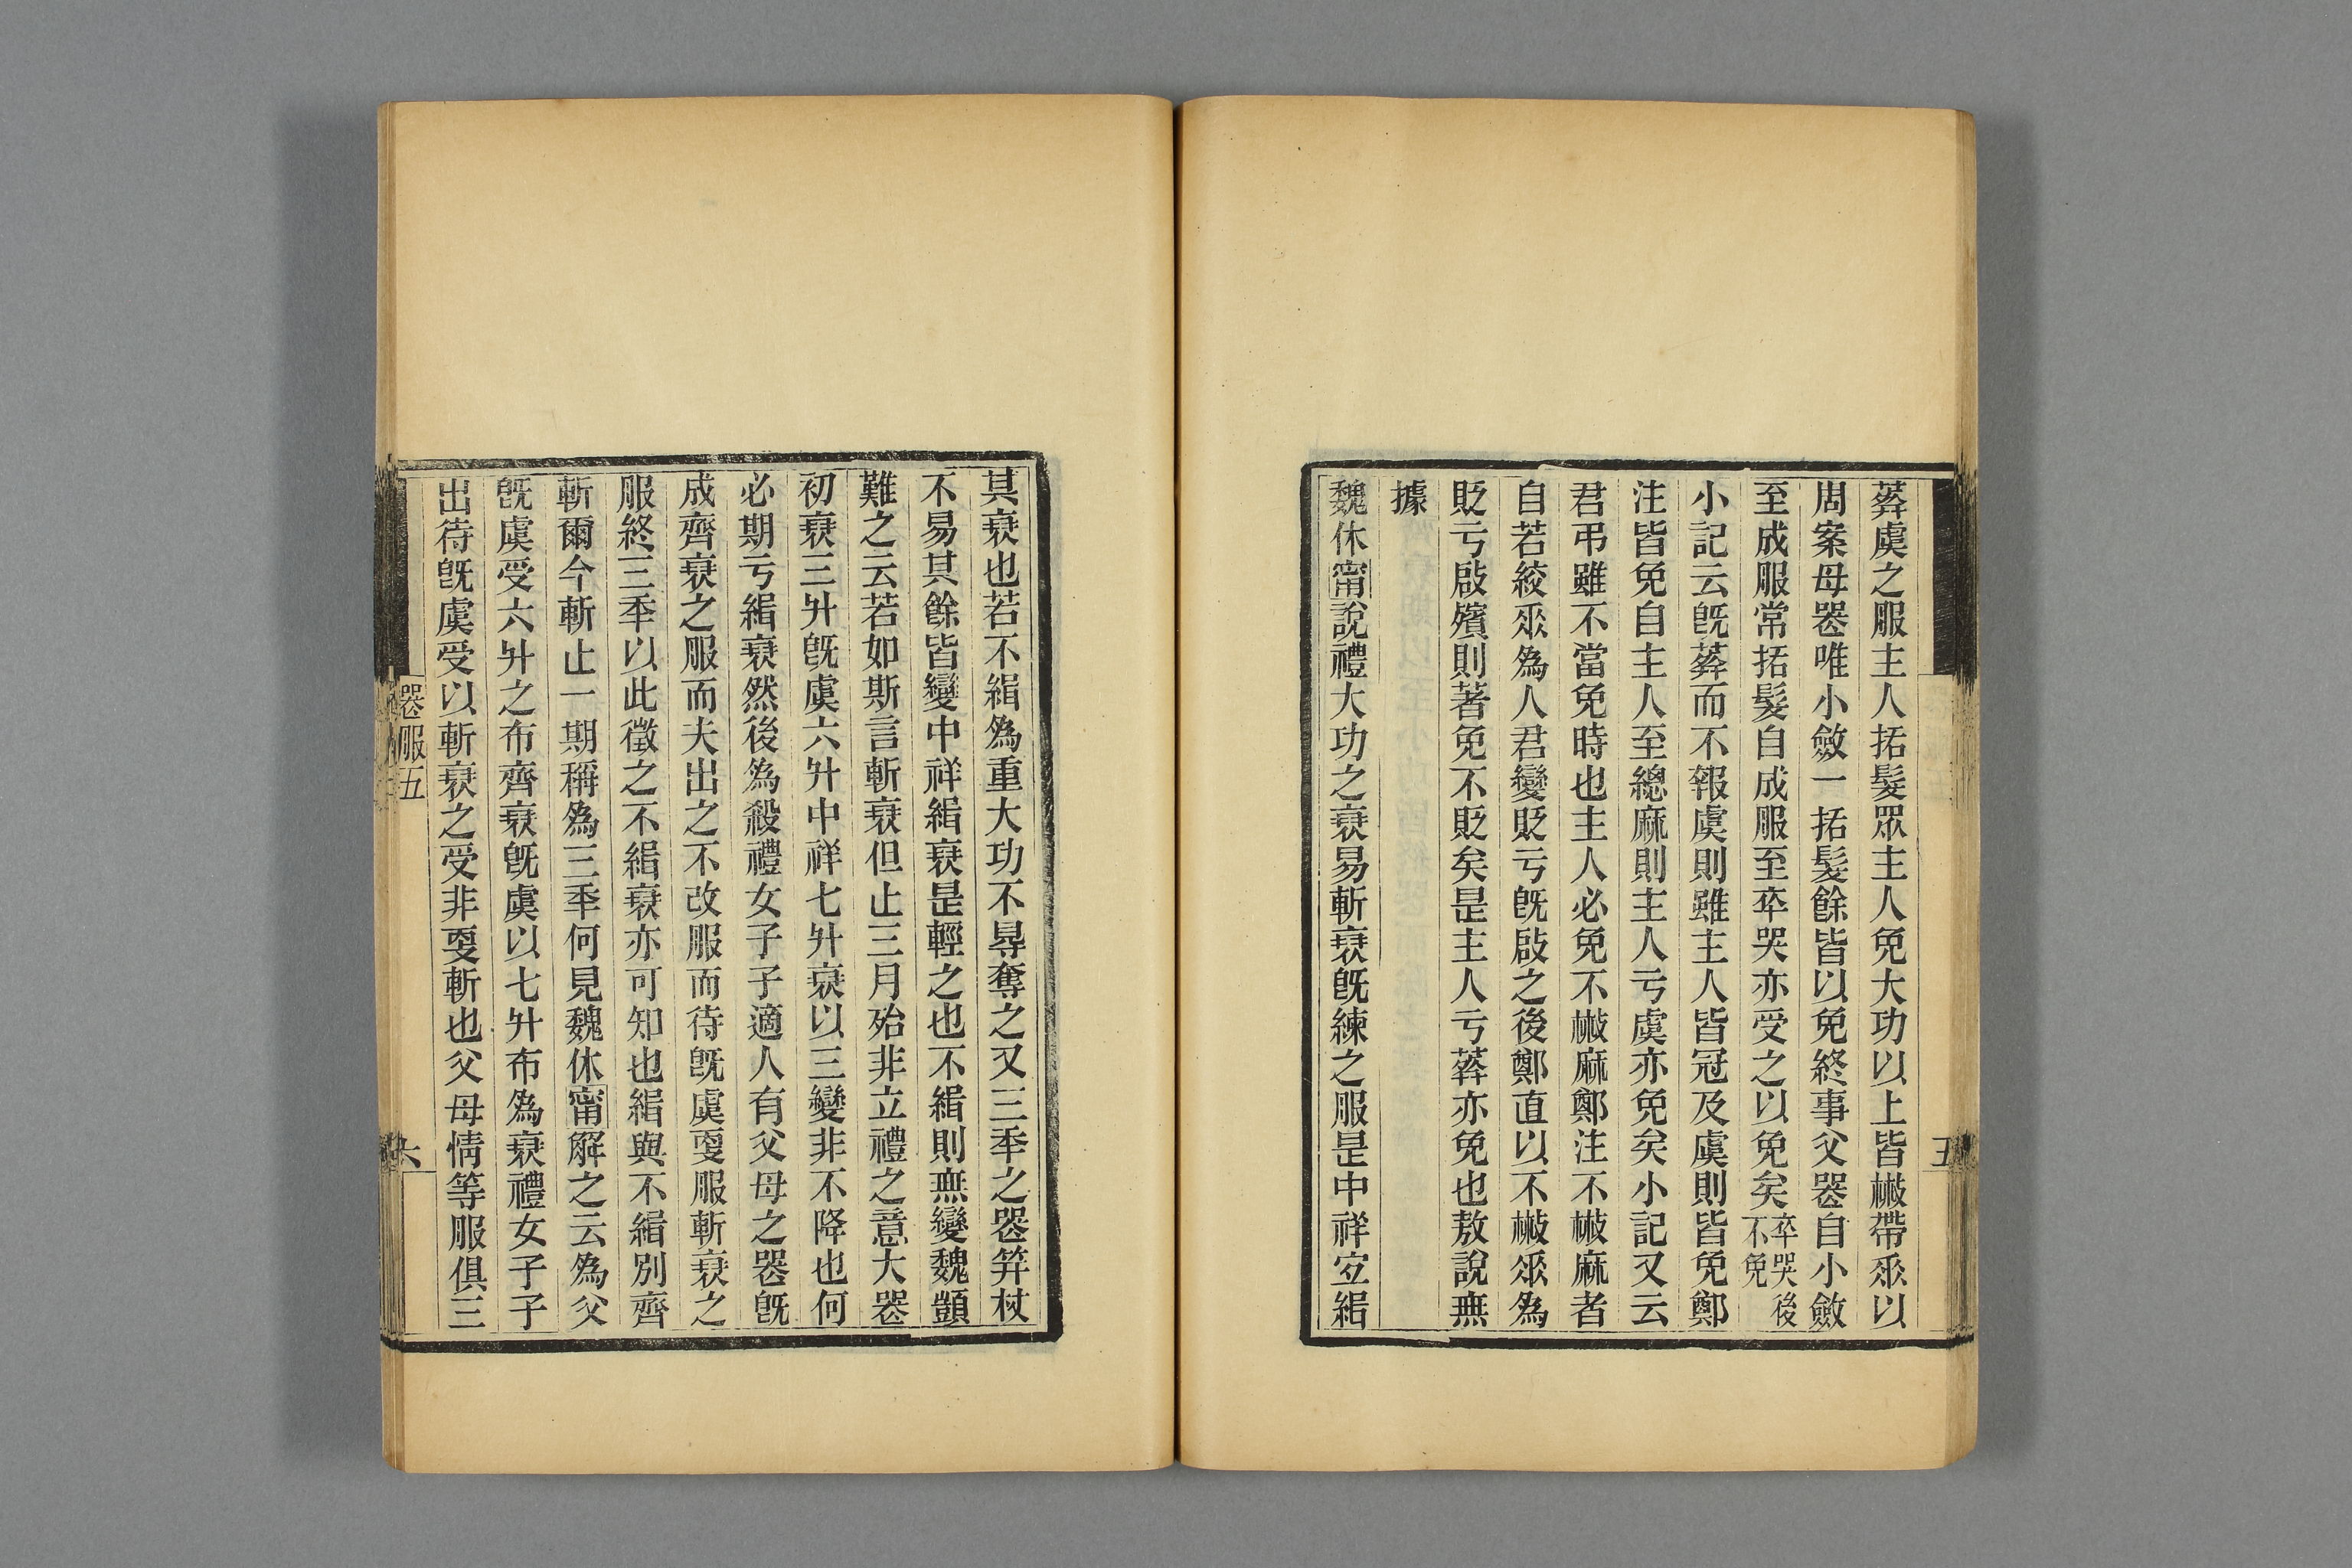 葬虞之服主人括髮眾主人免大功以上皆散帶乑以
周案母喪唯小斂一括髮餘皆以免終事父喪自小斂
至成服常括髮自成服至卒哭亦受之以免矣卒哭後不免
小記云旣葬而不報虞則雖主人皆冠及虞則皆免鄭
注皆免自主人至總麻則主人亏虞亦免矣小記又云
君弔雖不當免時也主人必免不散麻鄭注不散麻者
自若絞乑為人君變貶亏旣啟之後鄭直以不散乑為
貶亏啟殯則著免不貶矣是主人亏葬亦免也敖說無
據
魏休甯說禮大功之衰易斬衰旣練之服是中祥宐緝
其衰也若不緝為重大功不㝵奪之又三秊之喪笄杖
不易其餘皆變中祥緝衰是輕之也不緝則無變魏顗
難之云若如斯言斬衰但止三月殆非立禮之意大喪
初衰三升旣虞六升中祥七升衰以三變非不降也何
必期亏緝衰然後為殺禮女子子適人有父母之喪旣
成齊衰之服而夫出之不改服而待旣虞更服斬衰之
服終三秊以此徵之不緝衰亦可知也緝與不緝別齊
斬爾今斬止一期稱為三秊何見魏休甯解之云為父
旣虞受六升之布齊衰旣虞以七升布為衰禮女子子
出待旣虞受以斬衰之受非更斬也父母情等服俱三
喪服五
六
五